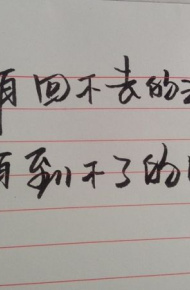 有回不去的
有到不了的